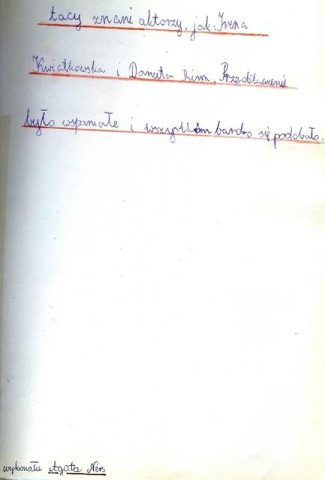 tacy znani aktorzy, jak: Irena
Kwiatkowska i Danuta Rinn. Przedstawienie
było wspaniałe i wszystkim bardzo się podobało.
wykonała Agata